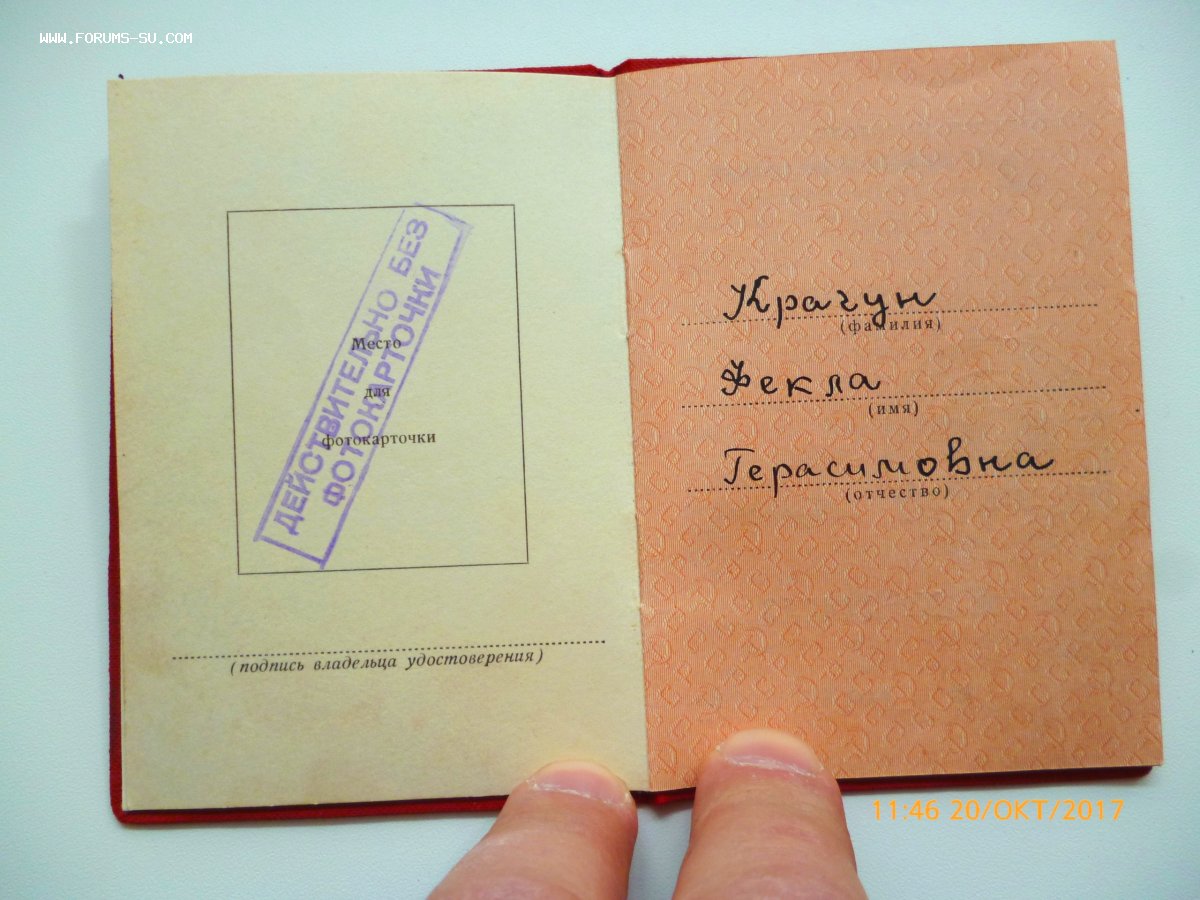 WWW.FORUMS-SU.COM
ДЕЙСТВИТЕЛЬНО БЕЗ
ФОТОКАРТОЧКИ
Место
для
фотокарточки
(подпись владельца удостоверения)
Крачун
(фамилия)
Фекла
(имя)
Герасимовна
(отчество)
11:46 20/ОКТ/2017